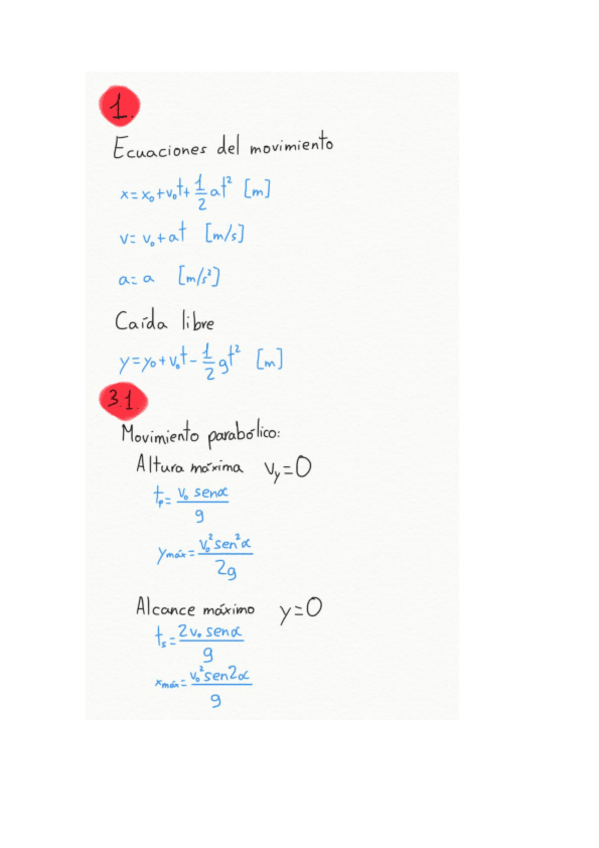 1.
Ecuaciones del movimiento
x = x₀ + v₀t + 1/2 at² [m]
v = v₀ + at [m/s]
a = a [m/s²]
Caída libre
y = y₀ + v₀t - 1/2 gt² [m]
3.1.
Movimiento parabólico:
Altura máxima Vy = 0
tₚ = v₀ senα / g
ymáx = v₀² sen²α / 2g
Alcance máximo y = 0
tₛ = 2v₀ senα / g
xmáx = v₀² sen2α / g